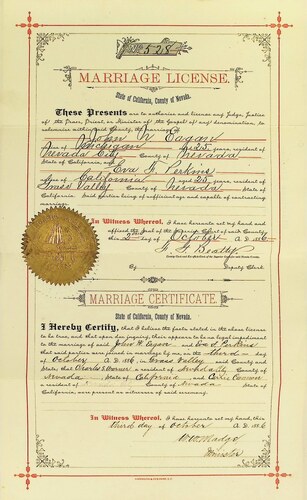 No. 528
MARRIAGE LICENSE.
State of California, County of Nevada.
These Presents are to authorize and license any Judge, Justice
of the Peace, Priest, or Minister of the Gospel of any denomination, to
solemnize within said County, the Marriage of
John W. Eagan
of Michigan aged 25 years, resident of
Nevada City County of Nevada
State of California, and Eva G. Perkins
of California aged 25 resident of
Grass Valley County of Nevada State of
California. Said parties being of sufficient age and capable of contracting
marriage.
In Witness Whereof, I have hereunto set my hand and
affixed the Seal of the Superior Court of said County
this day of October A. D.
Beatty
By Deputy Clerk.
MARRIAGE CERTIFICATE.
State of California, County of Nevada.
I Hereby Certify, that I believe the facts stated in the above license
to be true, and that upon due inquiry there appears to be no legal impediment
to the marriage of said John W. Eagan and Eva G. Perkins
that said parties were joined in marriage by me on the third day
of October A. D. in Grass Valley
that Charles a resident of
Nevada State of California and
a resident of County of Nevada State of
California, were present as witnesses of said ceremony.
In Witness Whereof, I have hereunto set my hand, this
third day of October A. D.
Minister